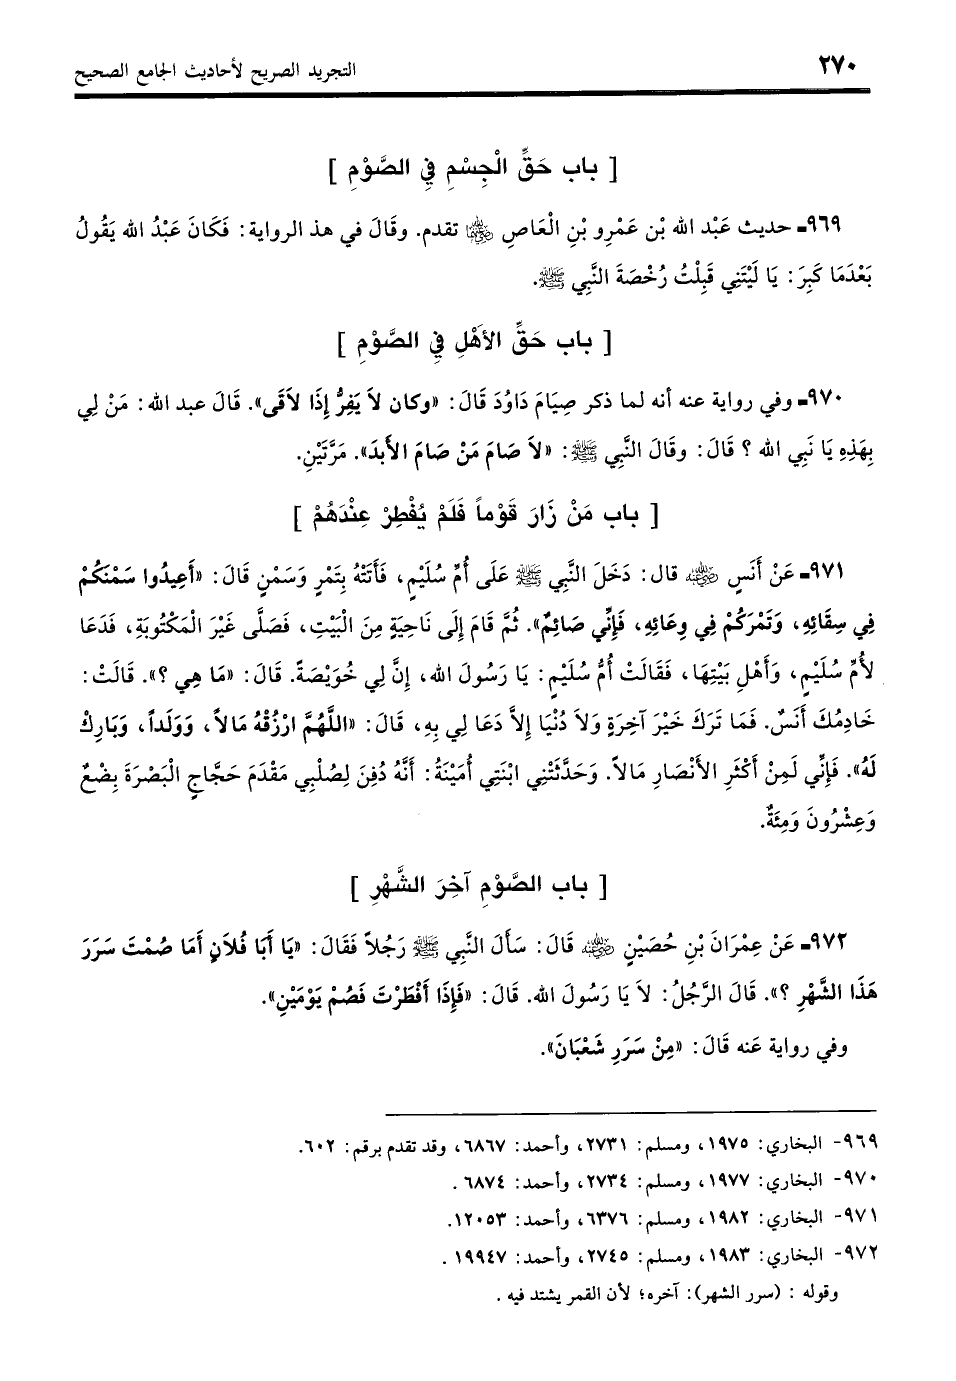 ٢٧٠
التجريد الصريح لأحاديث الجامع الصحيح
[ باب حَقِّ الْجِسْمِ فِي الصَّوْمِ ]
٩٦٩ـ حديث عَبْد الله بْن عَمْرِو بْنِ الْعَاصِ ﵄ تقدم. وقَالَ في هذ الرواية: فَكَانَ عَبْدُ الله يَقُولُ
بَعْدَمَا كَبِرَ: يَا لَيْتَنِي قَبِلْتُ رُخْصَةَ النَّبِي ﷺ.
[ باب حَقِّ الأَهْلِ فِي الصَّوْمِ ]
٩٧٠ـ وفي رواية عنه أنه لما ذكر صِيَامَ دَاوُدَ قَالَ: «وكان لاَ يَفِرُّ إِذَا لاَقَى». قَالَ عبد الله: مَنْ لِي
بِهَذِهِ يَا نَبِي الله ؟ قَالَ: وقَالَ النَّبِي ﷺ: «لاَ صَامَ مَنْ صَامَ الأَبدَ». مَرَّتَيْنِ.
[ باب مَنْ زَارَ قَوْماً فَلَمْ يُفْطِرْ عِنْدَهُمْ ]
٩٧١ـ عَنْ أَنَسٍ ﵁ قال: دَخَلَ النَّبِي ﷺ عَلَى أُمِّ سُلَيْمٍ، فَأَتَتْهُ بِتَمْرٍ وَسَمْنٍ قَالَ: «أَعِيدُوا سَمْنَكُمْ
فِي سِقَائِهِ، وَتَمْرَكُمْ فِي وِعَائِهِ، فَإِنِّي صَائِمٌ». ثُمَّ قَامَ إِلَى نَاحِيَةٍ مِنَ الْبَيْتِ، فَصَلَّى غَيْرَ الْمَكْتُوبَةِ، فَدَعَا
لأُمِّ سُلَيْمٍ، وَأَهْلِ بَيْتِهَا، فَقَالَتْ أُمُّ سُلَيْمٍ: يَا رَسُولَ الله، إِنَّ لِي خُوَيْصَةً. قَالَ: «مَا هِي ؟». قَالَتْ:
خَادِمُكَ أَنَسٌ. فَمَا تَرَكَ خَيْرَ آخِرَةٍ وَلاَ دُنْيَا إِلاَّ دَعَا لِي بِهِ، قَالَ: «اللَّهُمَّ ارْزُقْهُ مَالاً، وَوَلَداً، وَبَارِكْ
لَهُ». فَإِنِّي لَمِنْ أَكْثَرِ الأَنْصَارِ مَالاً. وَحَدَّثَتْنِي ابْنَتِي أُمَيْنَةُ: أَنَّهُ دُفِنَ لِصُلْبِي مَقْدَمَ حَجَّاجٍ الْبَصْرَةَ بِضْعٌ
وَعِشْرُونَ وَمِئَةٌ.
[ باب الصَّوْمِ آخِرَ الشَّهْرِ ]
٩٧٢ـ عَنْ عِمْرَانَ بْنِ حُصَيْنٍ ﵁ قَالَ: سَأَلَ النَّبِي ﷺ رَجُلاً فَقَالَ: «يَا أَبَا فُلاَنٍ أَمَا صُمْتَ سَرَرَ
هَذَا الشَّهْرِ ؟». قَالَ الرَّجُلُ: لاَ يَا رَسُولَ الله. قَالَ: «فَإِذَا أَفْطَرْتَ فَصُمْ يَوْمَيْنِ».
وفي رواية عَنه قَالَ: «مِنْ سَرَرِ شَعْبَانَ».
٩٦٩- البخاري: ١٩٧٥، ومسلم: ٢٧٣١، وأحمد: ٦٨٦٧، وقد تقدم برقم: ٦٠٢.
٩٧٠- البخاري: ١٩٧٧، ومسلم: ٢٧٣٤، وأحمد: ٦٨٧٤ .
٩٧١- البخاري: ١٩٨٢، ومسلم: ٦٣٧٦، وأحمد: ١٢٠٥٣.
٩٧٢- البخاري: ١٩٨٣، ومسلم: ٢٧٤٥، وأحمد: ١٩٩٤٧ .
وقوله : (سرر الشهر): آخره؛ لأن القمر يشتد فيه .